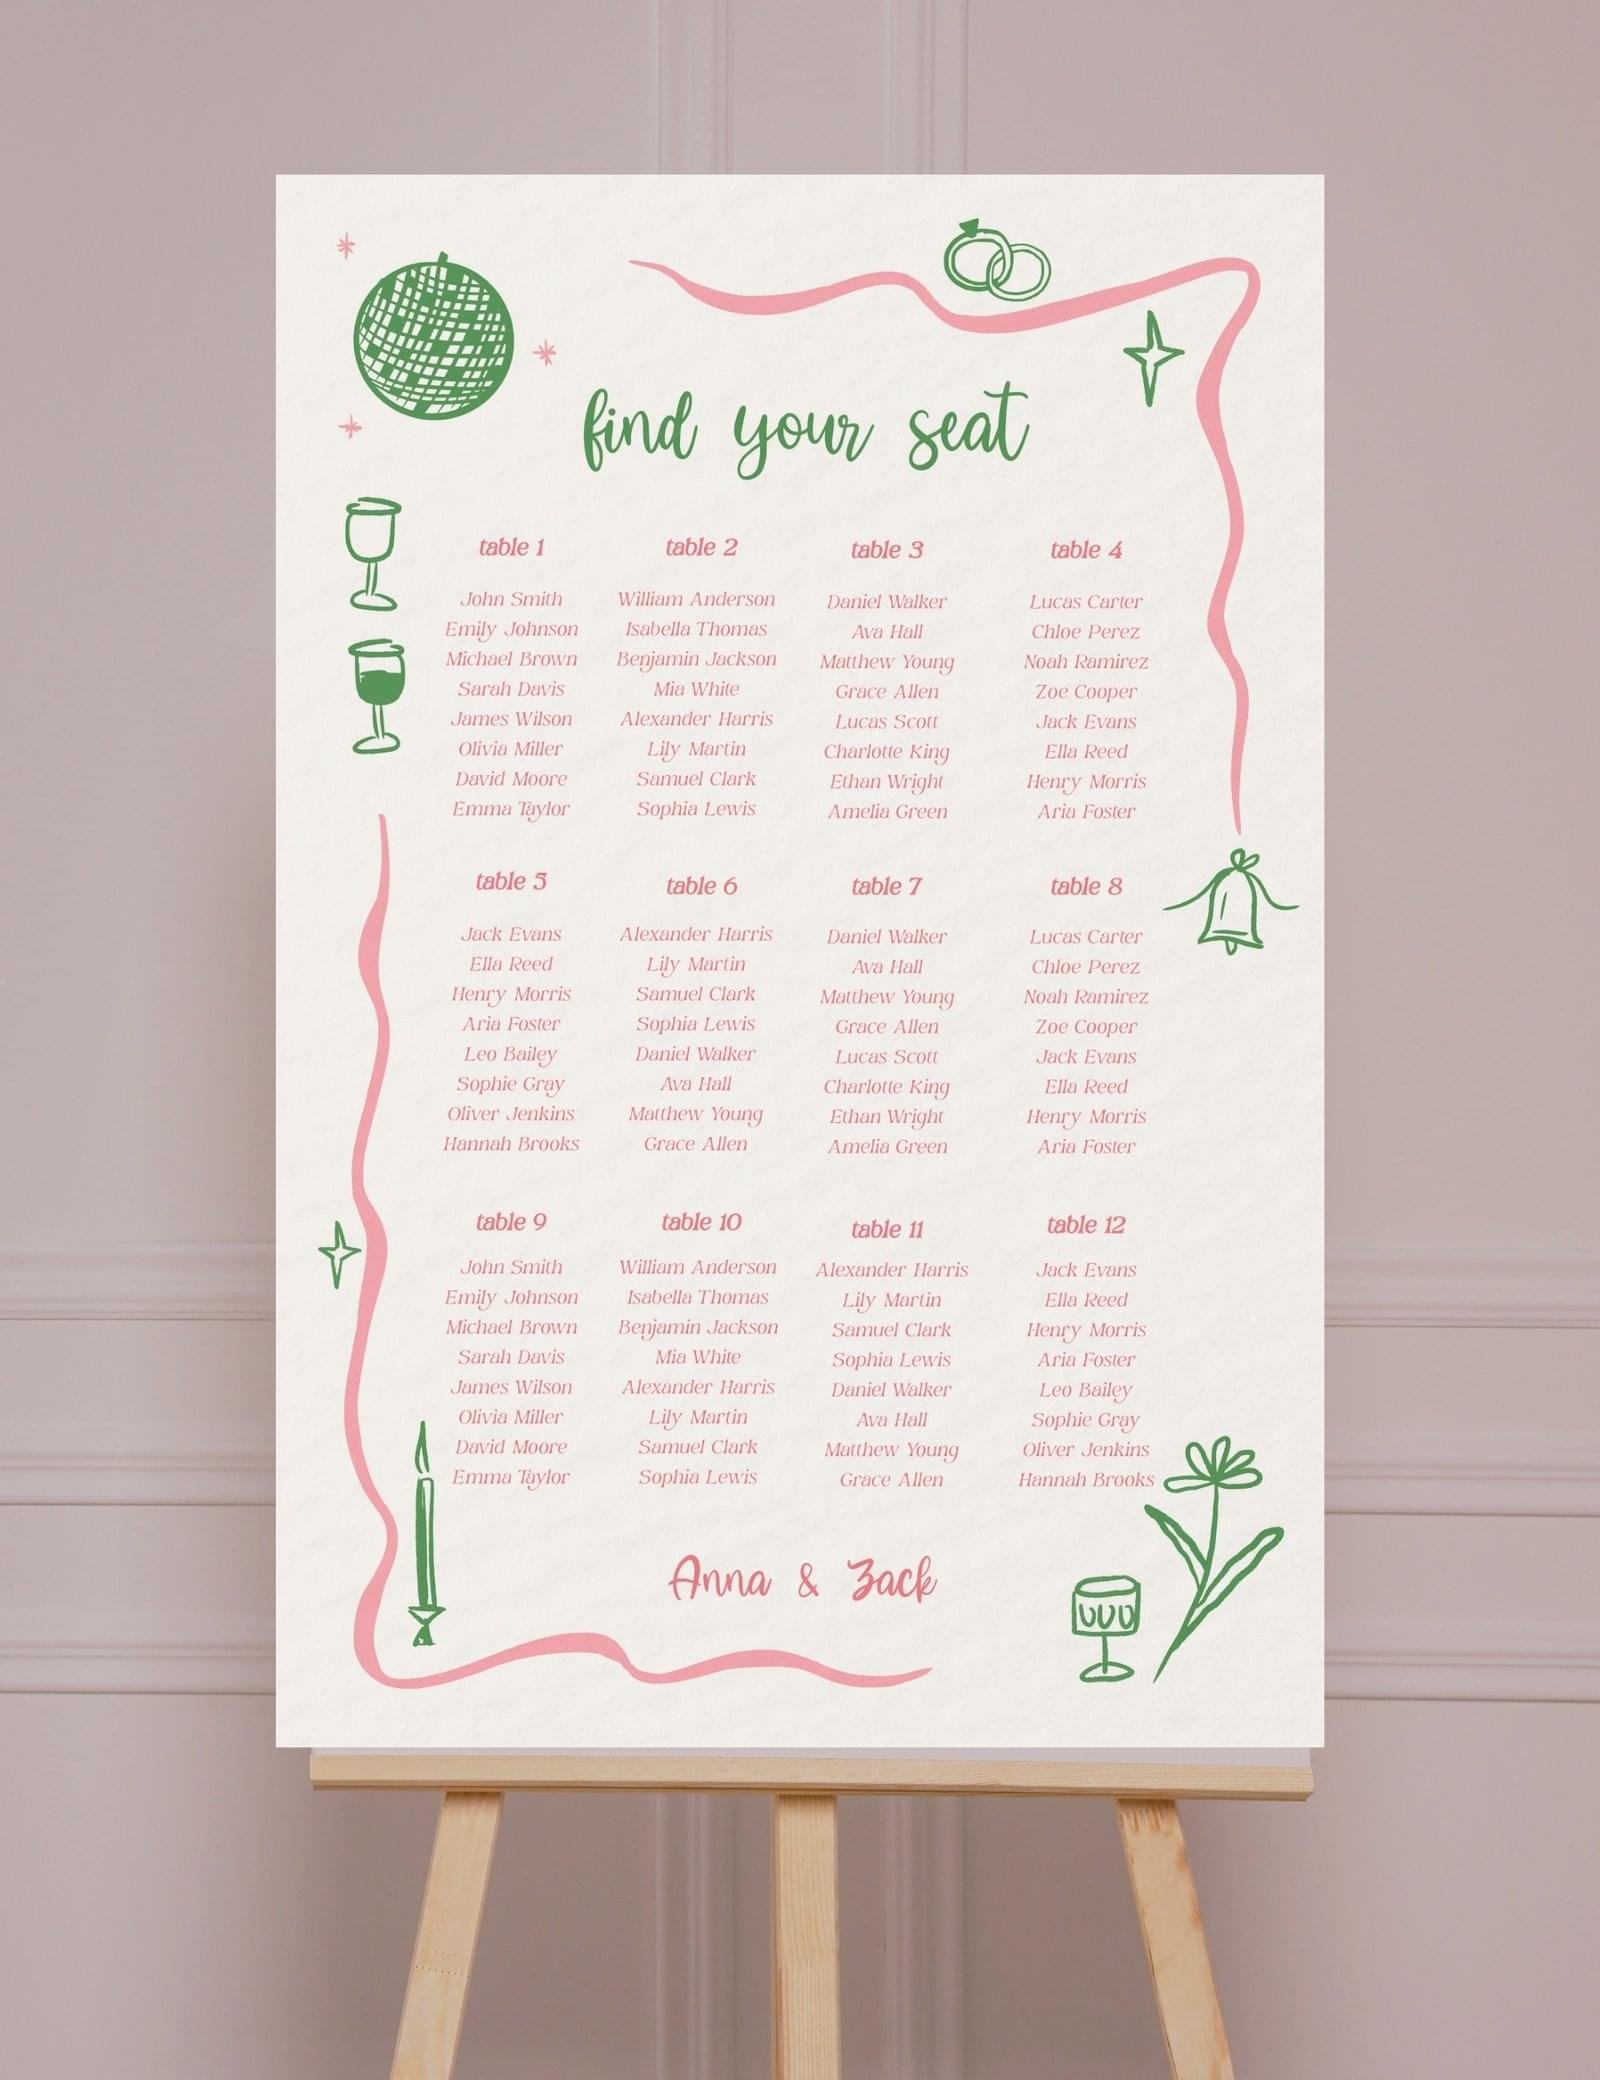 find your seat
table 1
John Smith
Emily Johnson
Michael Brown
Sarah Davis
James Wilson
Olivia Miller
David Moore
Emma Taylor
table 2
William Anderson
Isabella Thomas
Benjamin Jackson
Mia White
Alexander Harris
Lily Martin
Samuel Clark
Sophia Lewis
table 3
Daniel Walker
Ava Hall
Matthew Young
Grace Allen
Lucas Scott
Charlotte King
Ethan Wright
Amelia Green
table 4
Lucas Carter
Chloe Perez
Noah Ramirez
Zoe Cooper
Jack Evans
Ella Reed
Henry Morris
Aria Foster
table 5
Jack Evans
Ella Reed
Henry Morris
Aria Foster
Leo Bailey
Sophie Gray
Oliver Jenkins
Hannah Brooks
table 6
Alexander Harris
Lily Martin
Samuel Clark
Sophia Lewis
Daniel Walker
Ava Hall
Matthew Young
Grace Allen
table 7
Daniel Walker
Ava Hall
Matthew Young
Grace Allen
Lucas Scott
Charlotte King
Ethan Wright
Amelia Green
table 8
Lucas Carter
Chloe Perez
Noah Ramirez
Zoe Cooper
Jack Evans
Ella Reed
Henry Morris
Aria Foster
table 9
John Smith
Emily Johnson
Michael Brown
Sarah Davis
James Wilson
Olivia Miller
David Moore
Emma Taylor
table 10
William Anderson
Isabella Thomas
Benjamin Jackson
Mia White
Alexander Harris
Lily Martin
Samuel Clark
Sophia Lewis
table 11
Alexander Harris
Lily Martin
Samuel Clark
Sophia Lewis
Daniel Walker
Ava Hall
Matthew Young
Grace Allen
table 12
Jack Evans
Ella Reed
Henry Morris
Aria Foster
Leo Bailey
Sophie Gray
Oliver Jenkins
Hannah Brooks
Anna & Zack